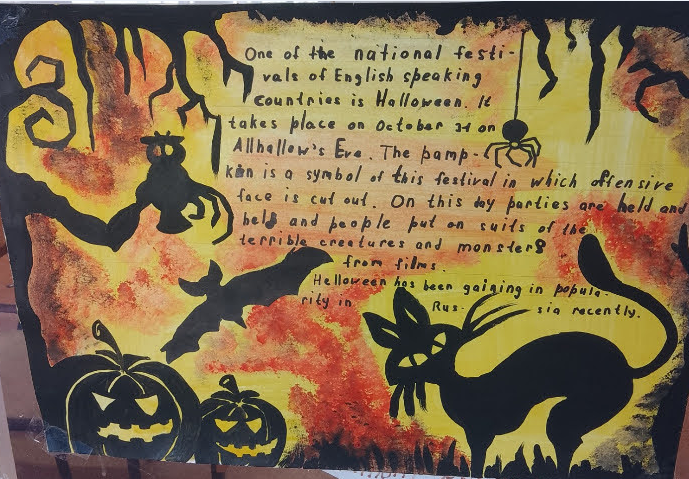 One of the national festi-
vals of English speaking
countries is Halloween. It
takes place on October 31 on
Allhallow's Eve. The pamp-
kin is a symbol of this festival in which offensive
face is cut out. On this day parties are held and
held and people put on suits of the
terrible creatures and monsters
from films.
Helloween has been gaining in popula-
rity in Rus- sia recently.